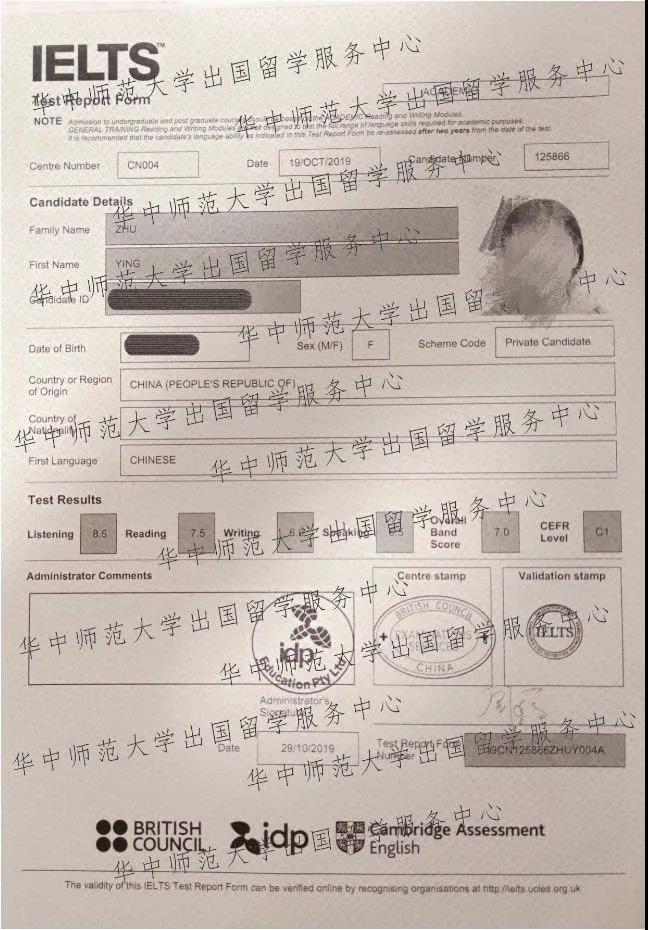 IELTS™
Test Report Form
ACADEMIC
NOTE Admission to undergraduate and post graduate courses should be based on the ACADEMIC Reading and Writing Modules.
GENERAL TRAINING Reading and Writing Modules are not designed to test the full range of language skills required for academic purposes.
It is recommended that the candidate's language ability as indicated in this Test Report Form be re-assessed after two years from the date of the test.
Centre Number CN004 Date 19/OCT/2019 Candidate Number 125866
Candidate Details
Family Name ZHU
First Name YING
Candidate ID
Date of Birth Sex (M/F) F Scheme Code Private Candidate
Country or Region of Origin CHINA (PEOPLE'S REPUBLIC OF)
Country of Nationality
First Language CHINESE
Test Results
Listening 8.5 Reading 7.5 Writing Speaking Overall Band Score 7.0 CEFR Level C1
Administrator Comments Centre stamp Validation stamp
idp
Education Pty Ltd
BRITISH COUNCIL
EXAMINATIONS SERVICES
CHINA
IELTS
Administrator's Signature
Date 29/10/2019 Test Report Form Number 19CN125866ZHUY004A
BRITISH COUNCIL
idp
Cambridge Assessment English
The validity of this IELTS Test Report Form can be verified online by recognising organisations at http://ielts.ucles.org.uk
华中师范大学出国留学服务中心
华中师范大学出国留学服务中心
华中师范大学出国留学服务中心
华中师范大学出国留学服务中心
华中师范大学出国留学服务中心
华中师范大学出国留学服务中心
华中师范大学出国留学服务中心
华中师范大学出国留学服务中心
华中师范大学出国留学服务中心
华中师范大学出国留学服务中心
华中师范大学出国留学服务中心
华中师范大学出国留学服务中心
华中师范大学出国留学服务中心